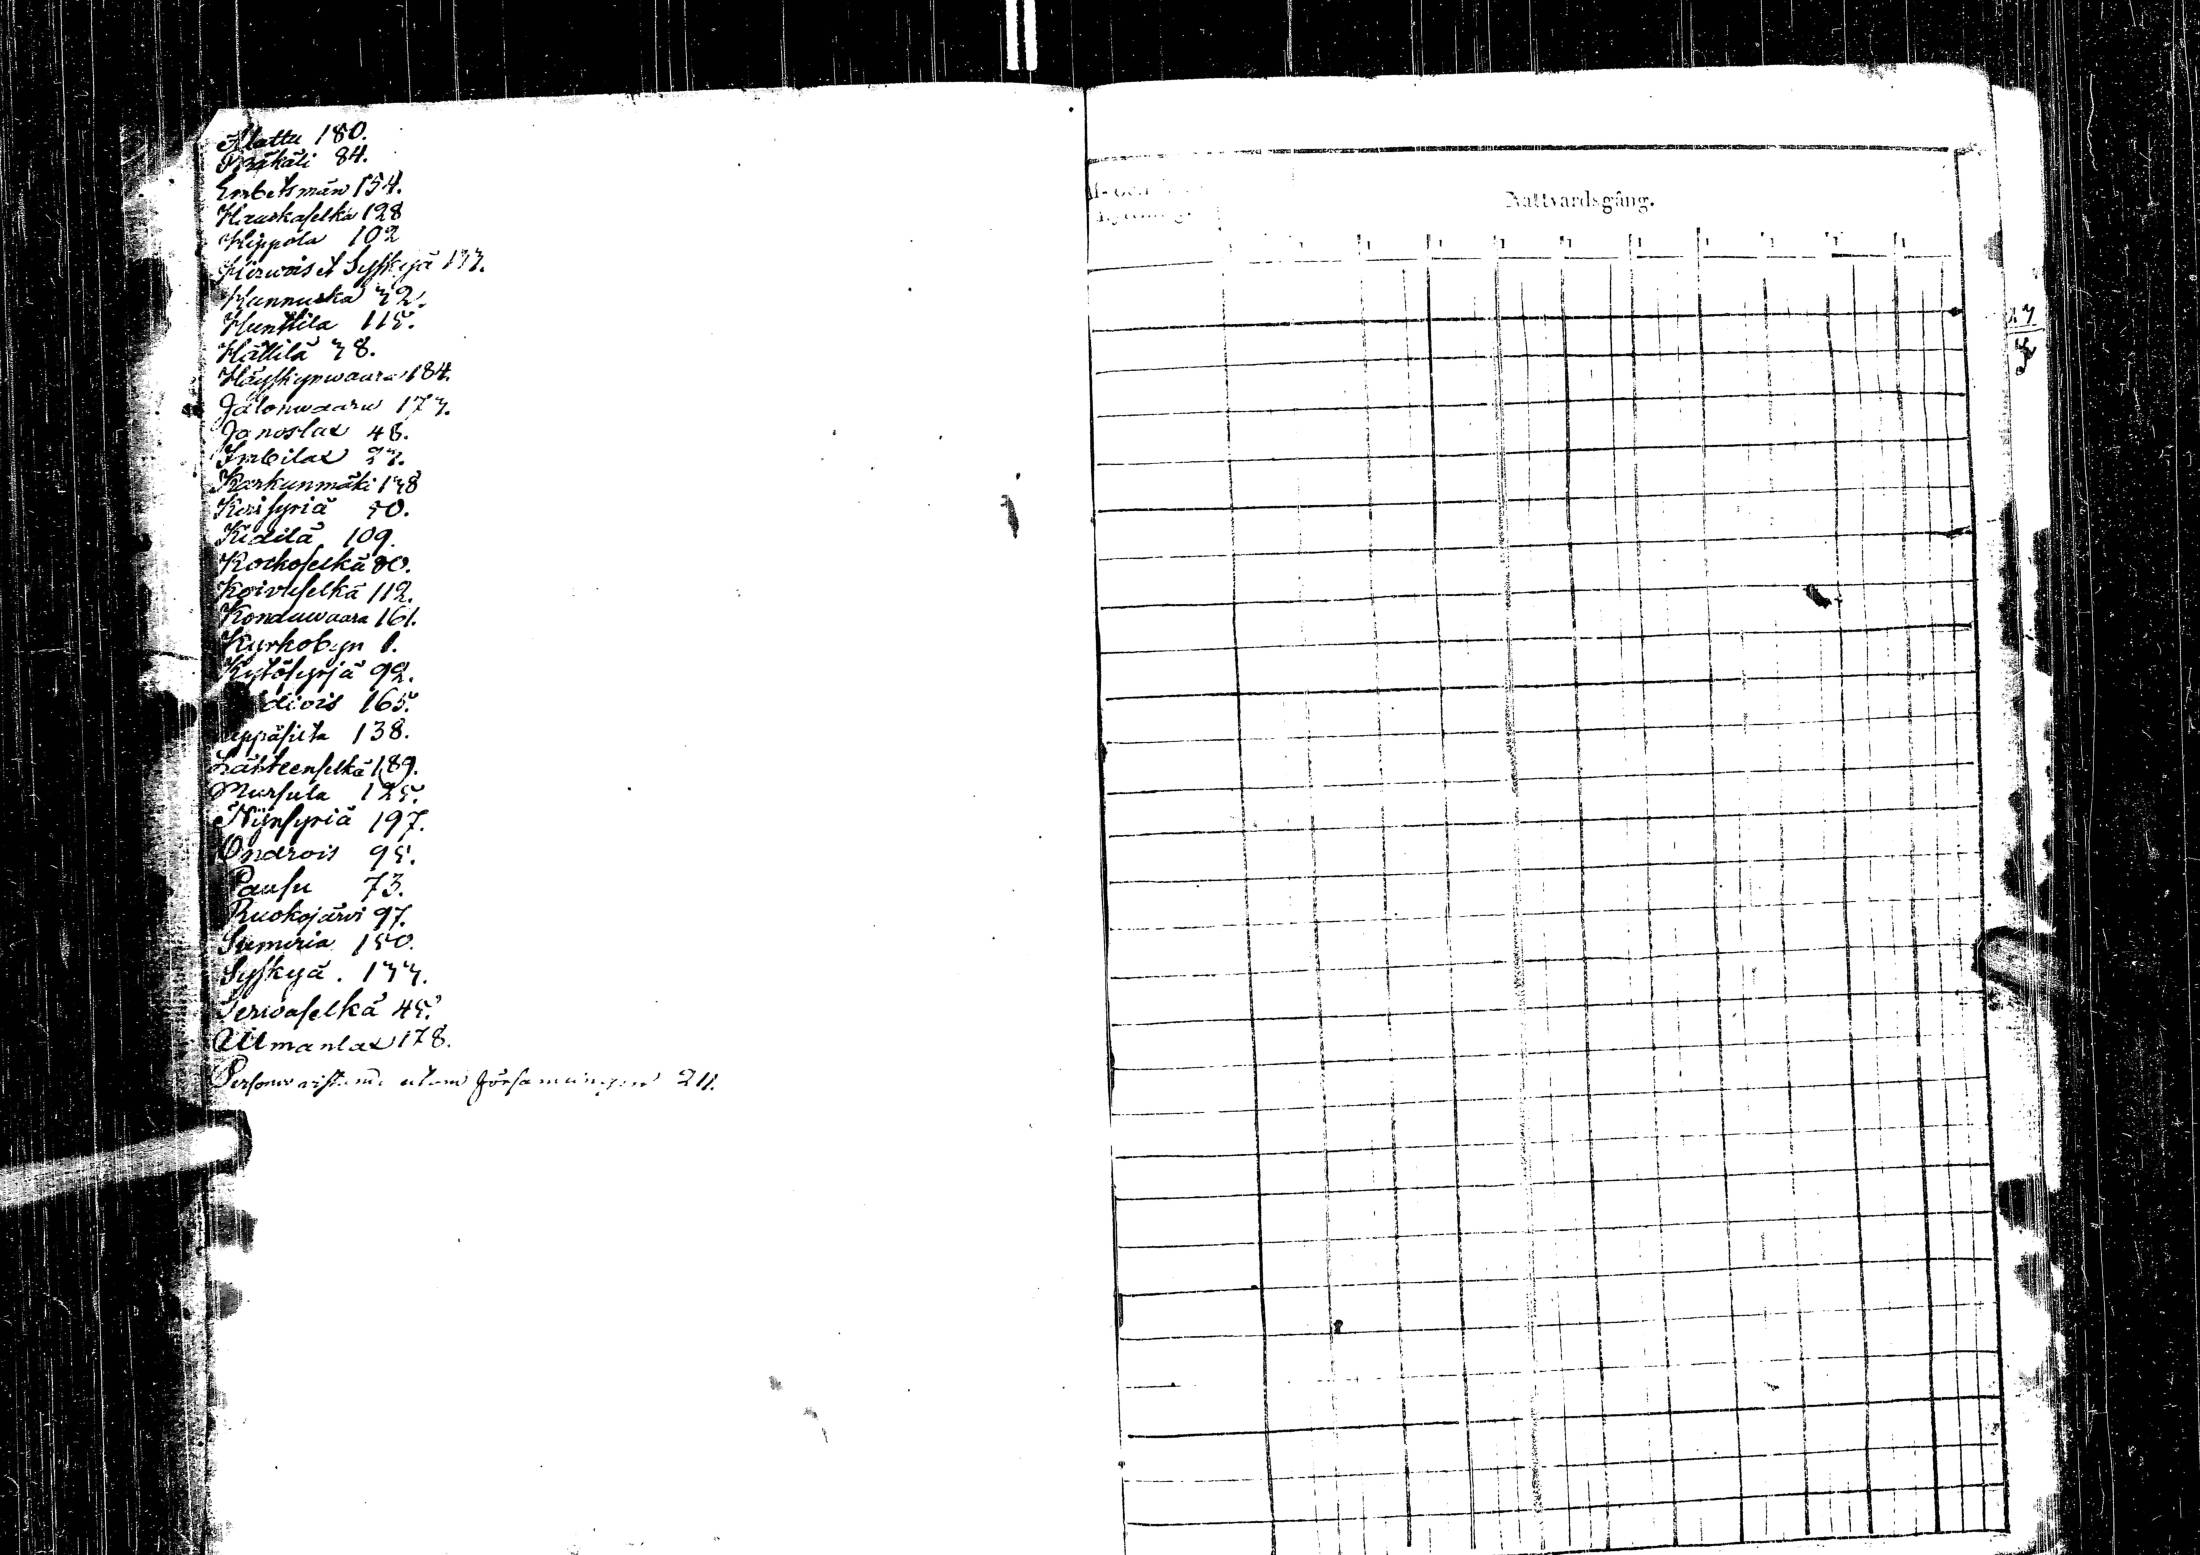 Alattu 180.
Bräkäli 84.
Embetsmän 154.
Hauskaselkä 128
Hippola 102
Hirvois et Syskyjä 177.
Hannuska 72.
Hunttila 115.
Hättilä 78.
Häyskynwaara 184.
Jalonwaara 177.
Janoslax 48.
Imbilax 27.
Karkunmäki 178
Kerisyriä 70.
Kidilä 109.
Kockoselkä 80.
Koivuselkä 112.
Konduwaara 161.
Kyrkobyn 1.
Kytösyrjä 92.
diois 165.
eppäsilta 138.
Lähteenselkä 189.
Mursula 125.
Niinsyriä 197.
Ondrois 95.
Pausu 73.
Ruokojärvi 97.
Sumeria 150.
Syskyjä. 177.
Terwaselkä 45.
Uumanlax 178.
Personer utom församlingen 211.
Nattvardsgång.
27